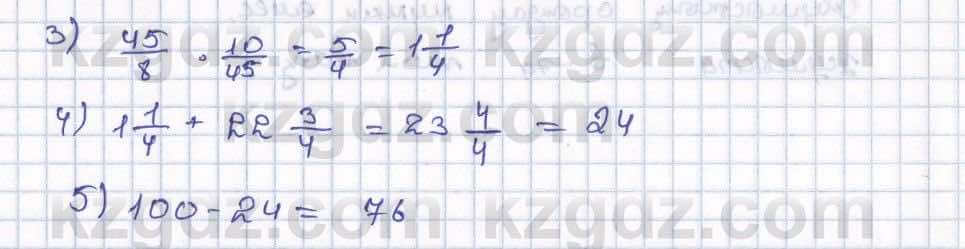 3) 45/8 · 10/45 = 5/4 = 1 1/4
4) 1 1/4 + 22 3/4 = 23 4/4 = 24
5) 100 - 24 = 76
kzgdz.com